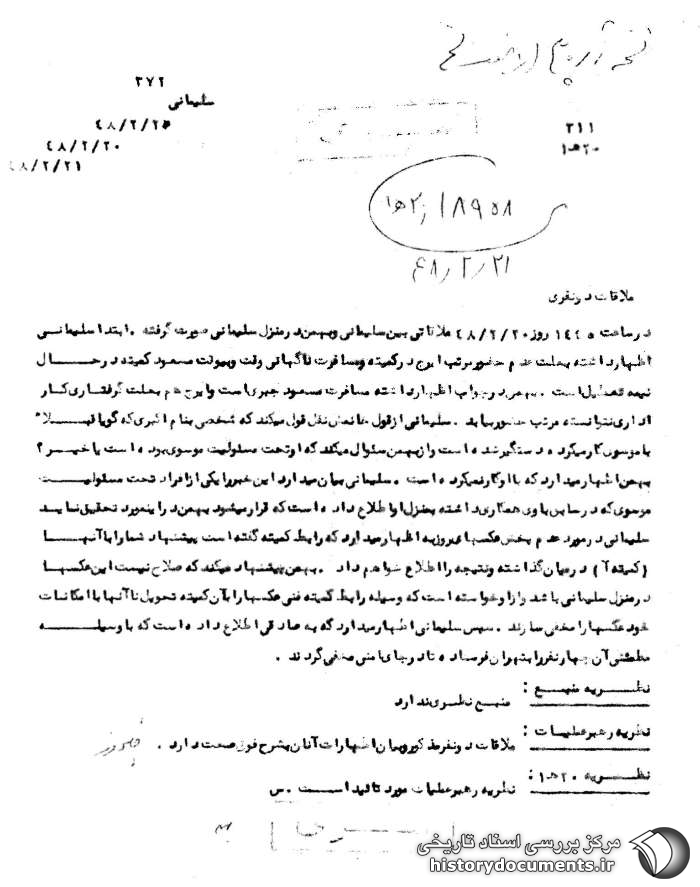 ۳۷۲
سلیمانی
۴۸/۲/۲۰
۴۸/۲/۲۰
۴۸/۲/۲۱
۳۱۱
۲۰ه‍۱
۱۸۹۵۸
۴۸/۲/۲۱
ملاقات دونفری
درساعت ۱۴۴۵ روز ۴۸/۲/۲۰ ملاقاتی بین سلیمانی وبهمن درمنزل سلیمانی صورت گرفته . ابتدا سلیمانی
اظهارداشته بعلت عدم حضورمرتب ایرج درکمیته ومسافرت ناگهانی وقت وبیوقت مسعود کمیته درحال
نیمه تعطیل است . بهمن درجواب اظهارداشته مسافرت مسعود جبری است وایرج هم بعلت گرفتاری کار
اداری نتوانسته مرتب حاضربیاید . سلیمانی ازقول نقل قول میکند که شخصی بنام اکبری که گویا قبلا"
باموسوی کارمیکرده دستگیرشده است وازبهمن سئوال میکند که اوتحت مسئولیت موسوی بوده است یا خیر ؟
بهمن اظهارمیدارد که با اوکارنمیکرده است . سلیمانی بیان میدارد این خبررا یکی ازافراد تحت مسئولیت
موسوی که درسابق باوی همکاری داشته بمنزل اواطلاع داده است که قرارمیشود بهمن دراینمورد تحقیق نماید
سلیمانی درمورد عدم پخش عکسهای روزبه اظهارمیدارد که رابط کمیته گفته است پیشنهاد شما را با آنها
( کمیته آ ) درمیان گذاشته ونتیجه را اطلاع خواهم داد . بهمن پیشنهاد میکند که صلاح نیست این عکسها
درمنزل سلیمانی باشد وازاوخواسته است که وسیله رابط کمیته فنی عکسها را بآن کمیته تحویل تا آنها با امکانات
خود عکسها را مخفی سازند . سپس سلیمانی اظهارمیدارد که به صادقی اطلاع داده است که با وسیله
مطمئنی آن چهارنفررا بتهران فرستاده تا درجای امنی مخفی گردند .
نظریه منبع :
منبع نظری ندارد
نظریه رهبرعملیات :
ملاقات دونفرمذکوروبیان اظهارات آنان بشرح فوق صحت دارد .
نظریه ۲۰ه‍۱ :
نظریه رهبرعملیات مورد تائید است . س
مرکز بررسی اسناد تاریخی
historydocuments.ir